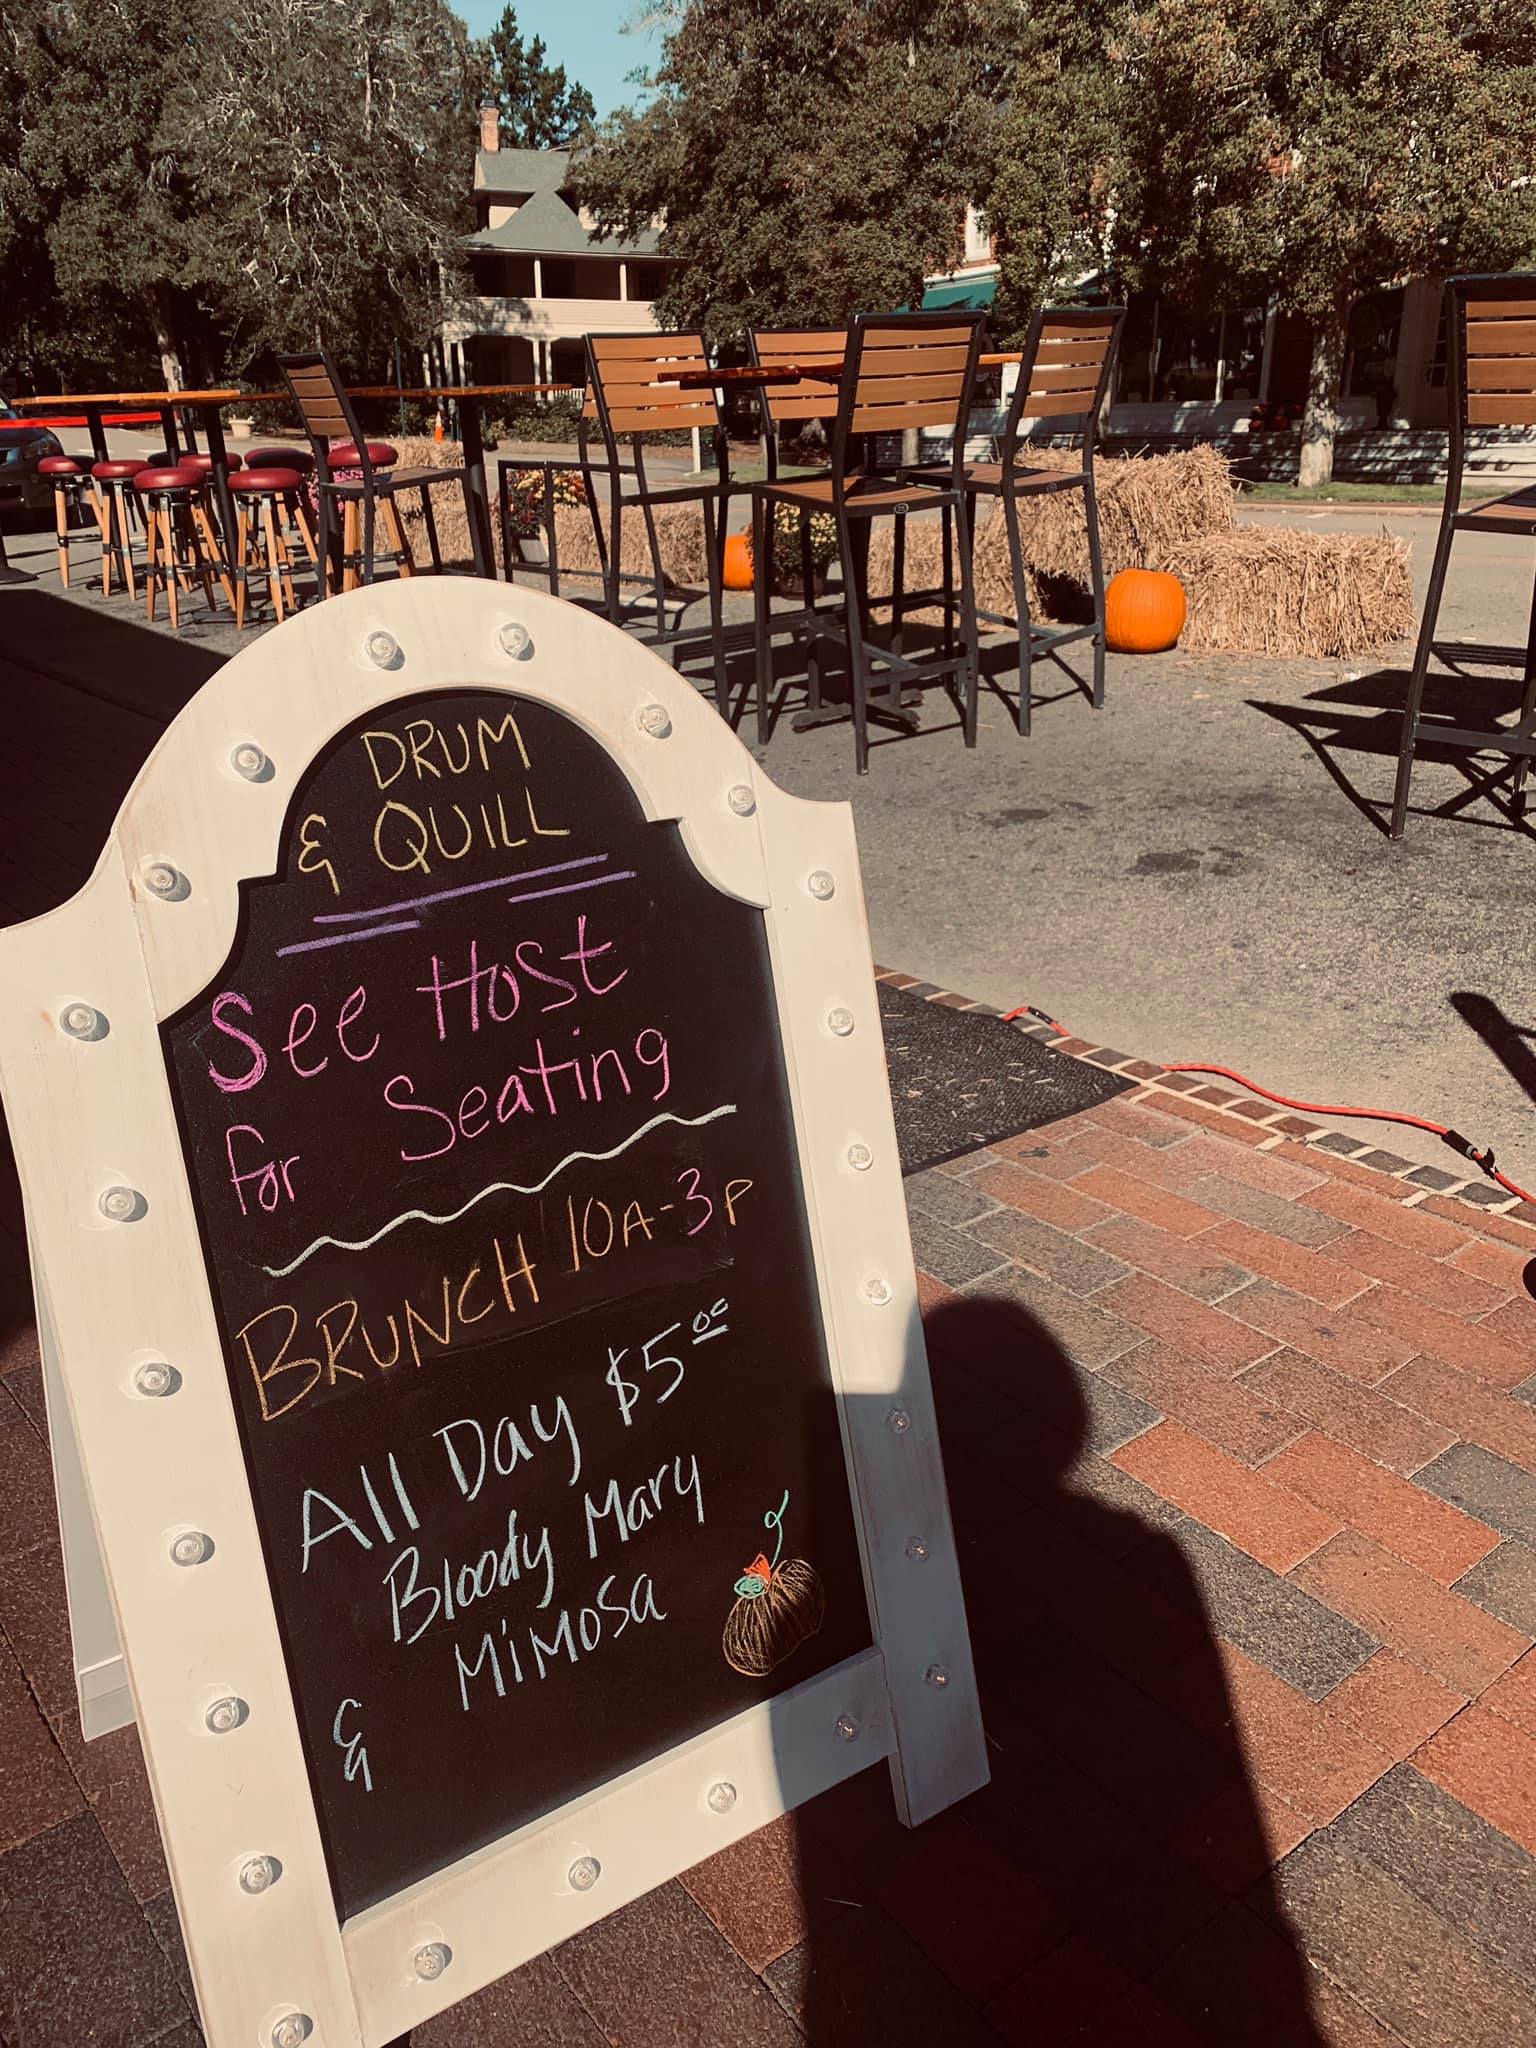 DRUM
& QUILL
See Host
for Seating
BRUNCH 10A-3P
All Day $5.00
Bloody Mary
& Mimosa